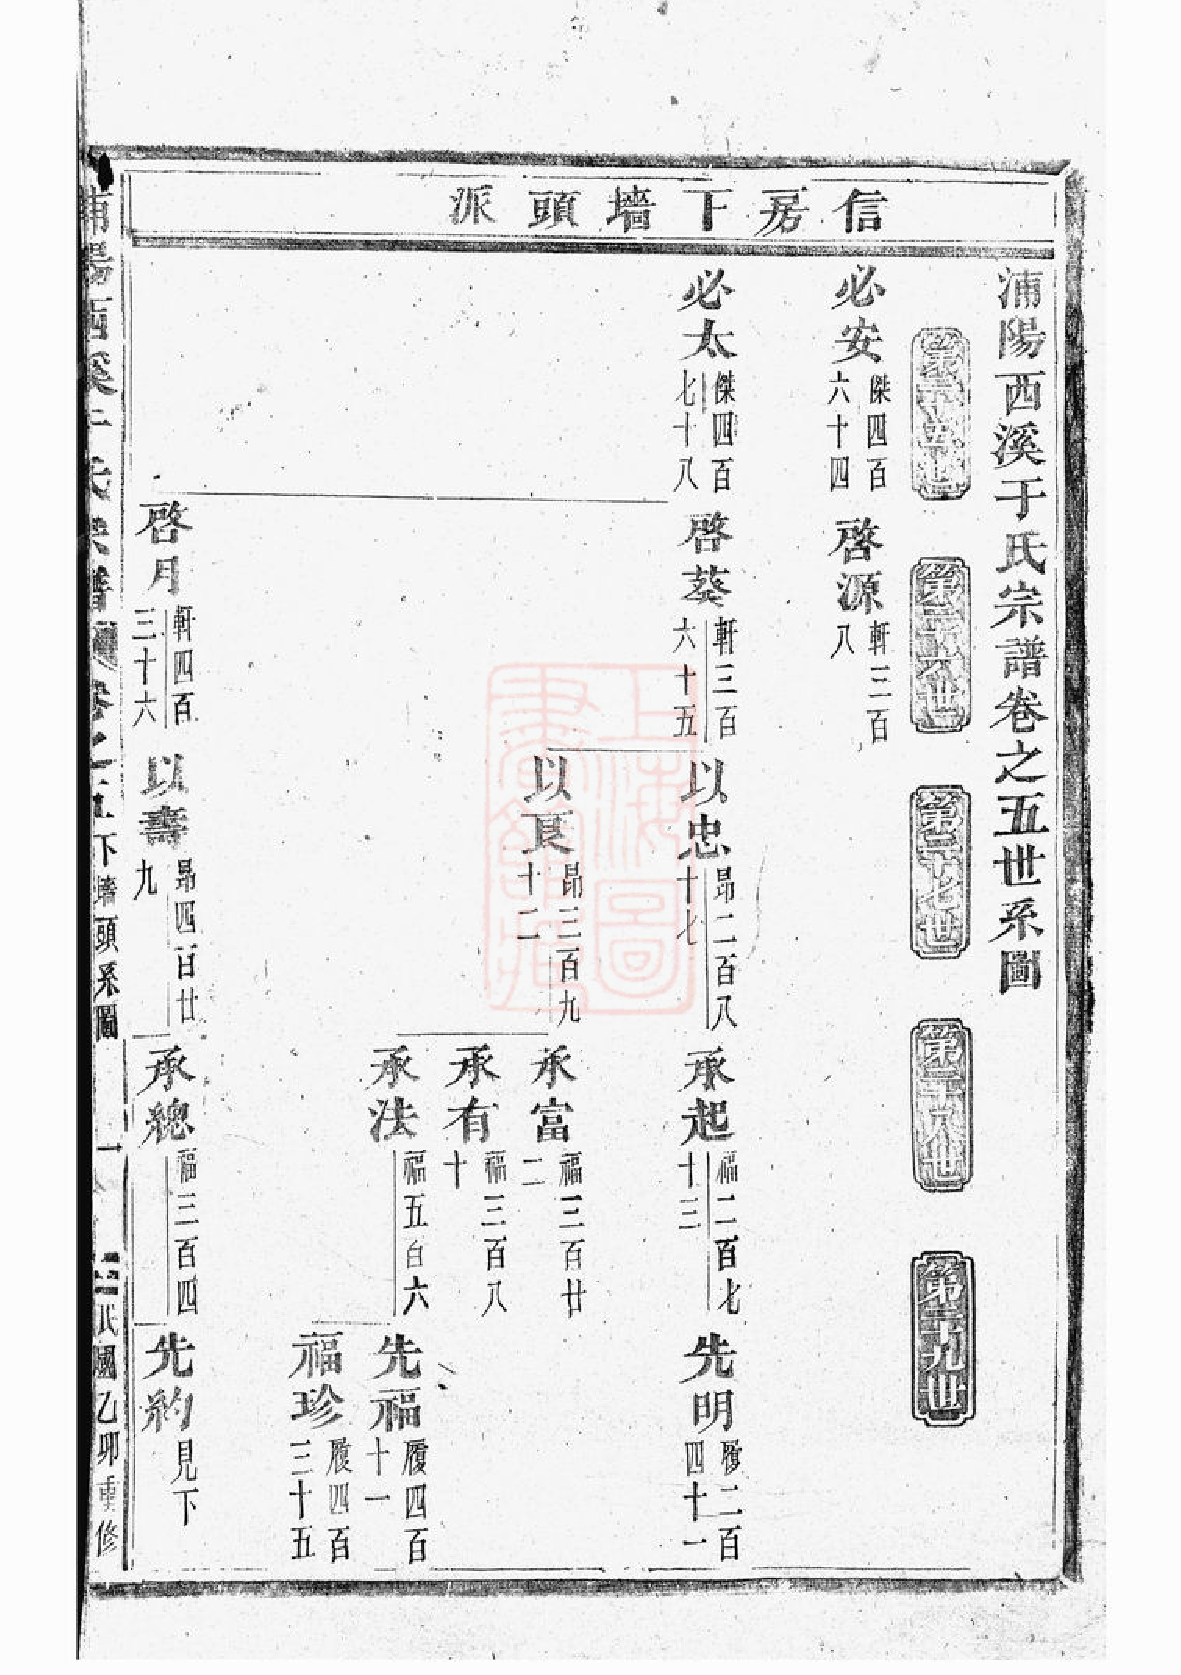 信房下墻頭派
浦陽西溪于氏宗譜卷之五世系圖
第二十六世
第二十七世
第二十八世
第二十九世
必安 傑四百六十四
啓源 軒三百八
必太 傑四百七十八
啓葵 軒三百六十五
以忠 昻二百八十七
承起 福二百七十三
先明 履二百四十一
以良 昻三百九十二
承富 福三百廿二
承有 福三百八十
承法 福五百六
先福 履四百十一
福珍 履四百三十五
啓月 軒四百三十六
以壽 昻四百廿九
承總 福三百四
先約 見下
浦陽西溪于氏宗譜 卷之五 下墻頭系圖 一 民國乙卯重修
上海圖書館藏